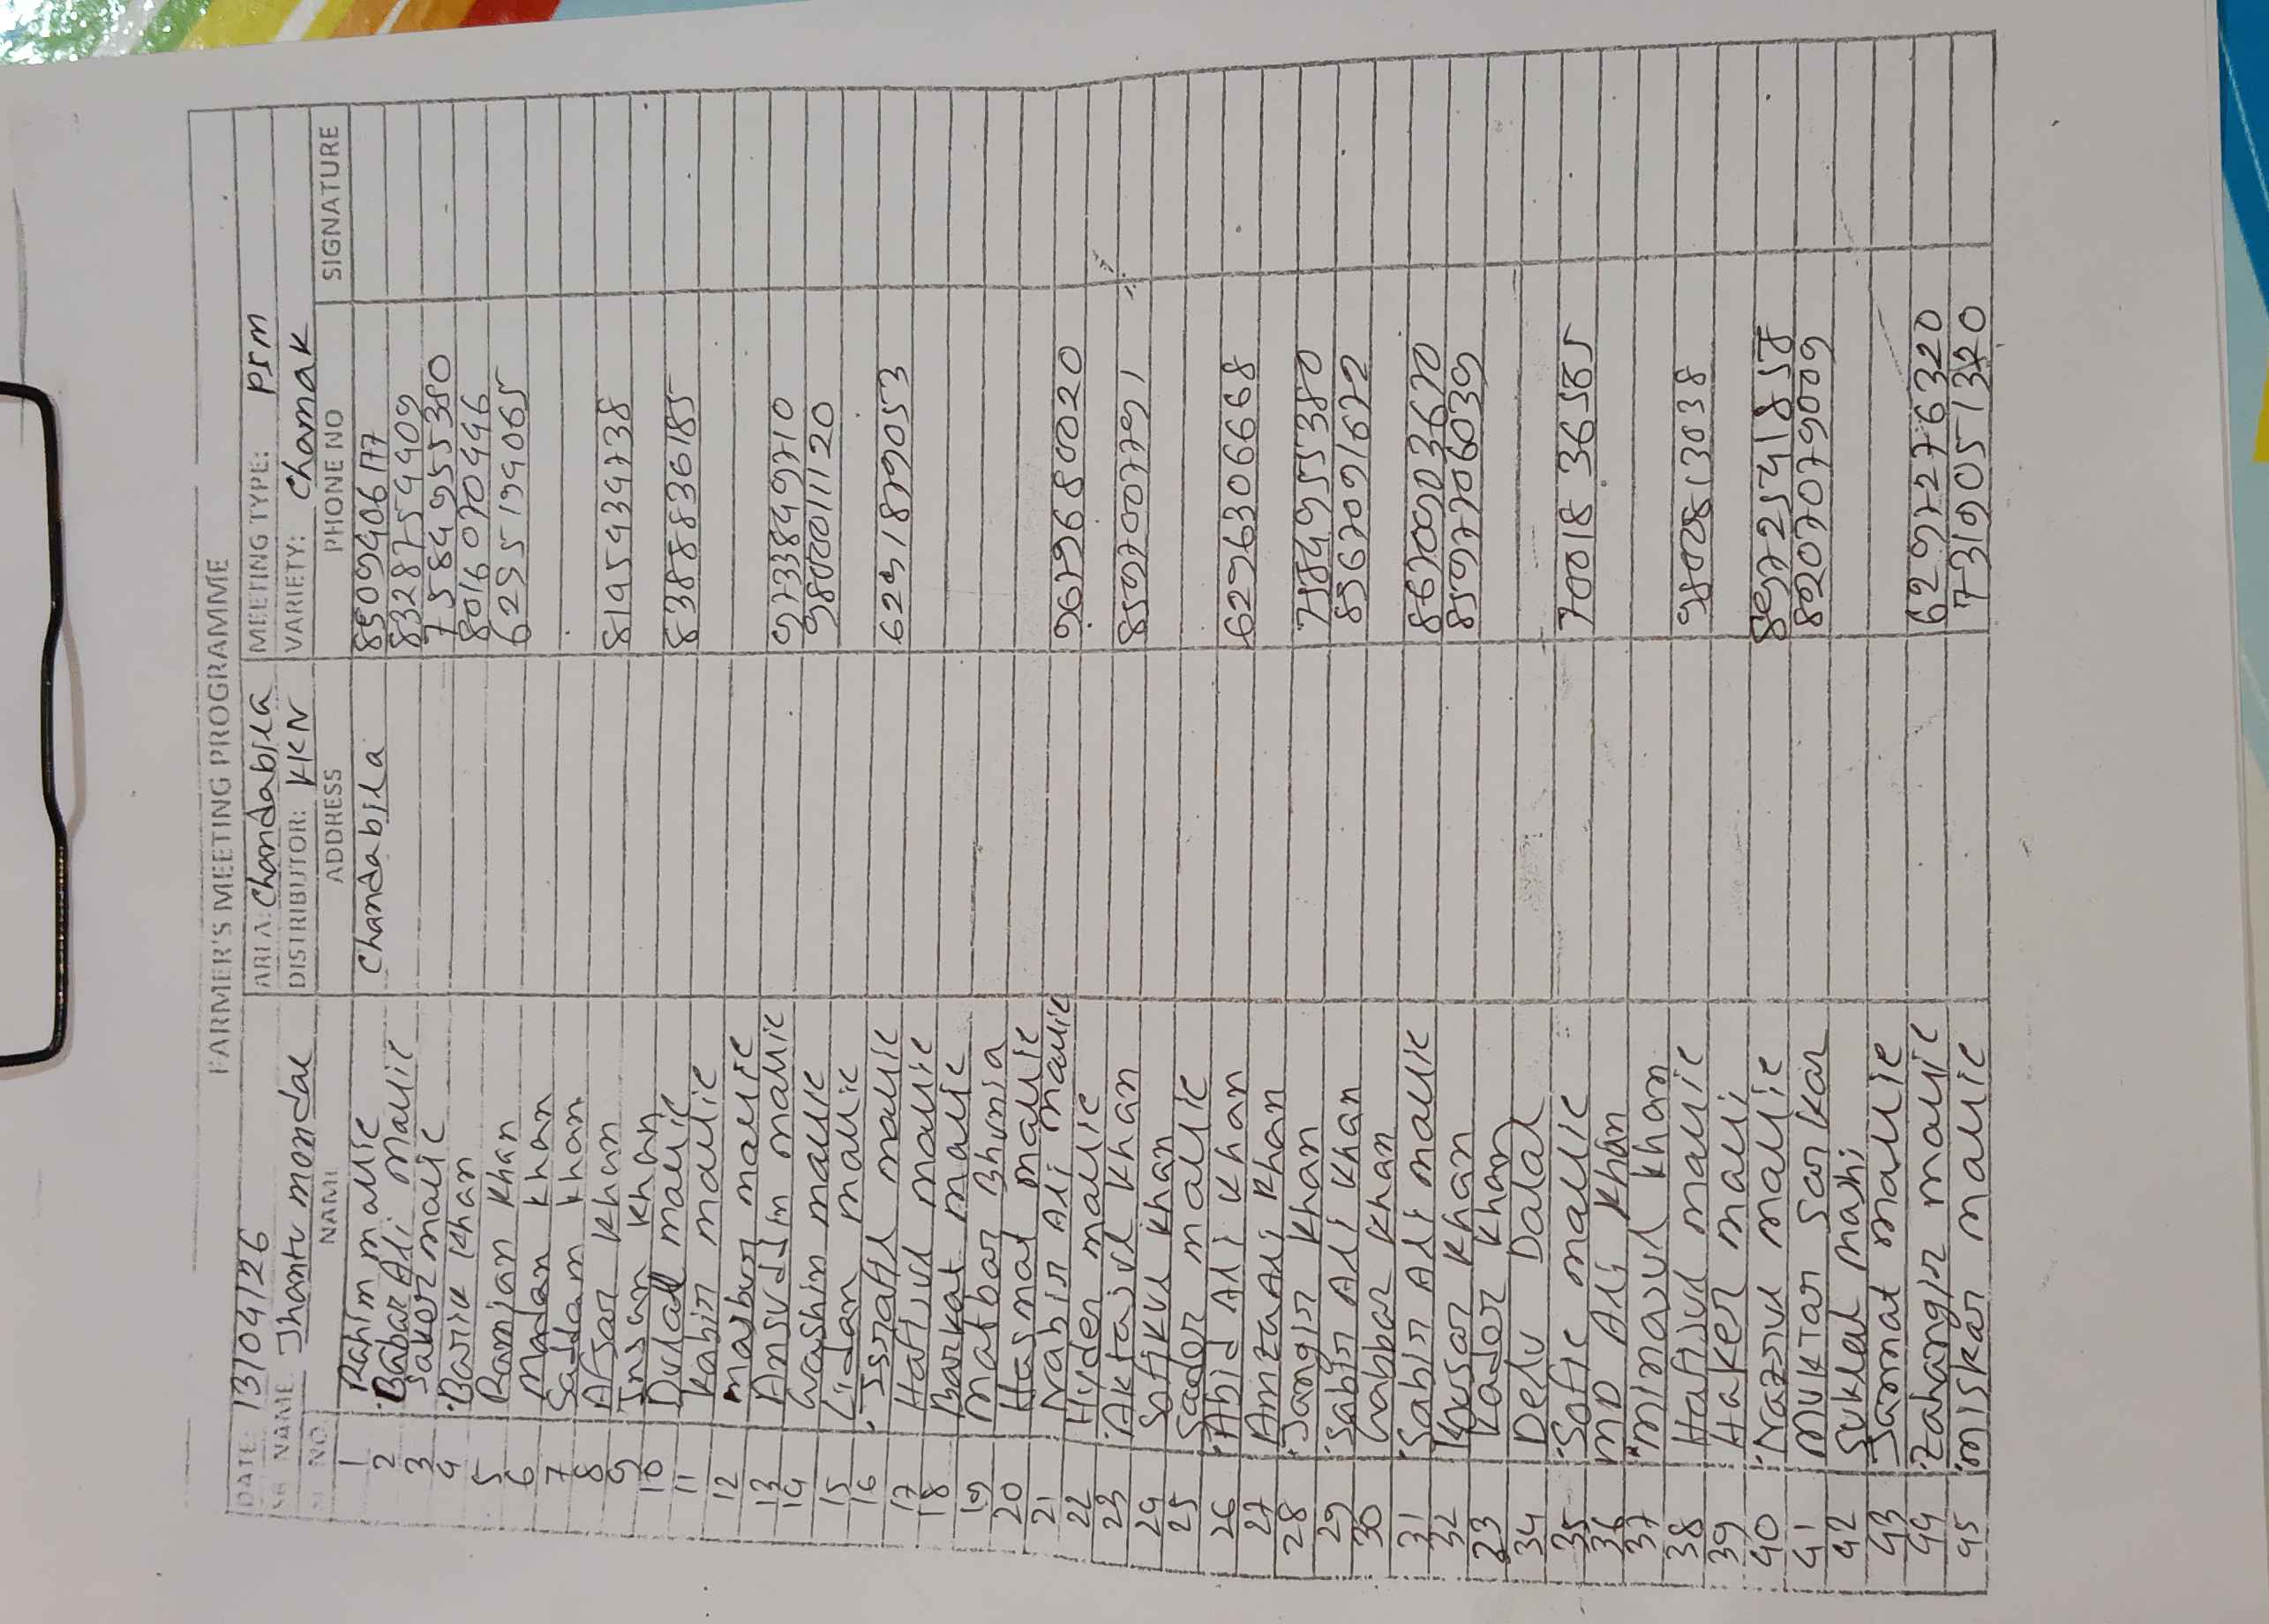 FARMER'S MEETING PROGRAMME
DATE: 13/04/26 AREA: Chandabila MEETING TYPE: PSM
NAME Jhantu mondal DISTRIBUTOR: KKN VARIETY: Chamak
NO. NAME ADDRESS PHONE NO SIGNATURE
1 Rahim mallic Chandabila 8509940617
2 Babar Ali Mallic 8328754409
3 Saker mallic 7584955380
4 Barik Khan 8016070446
5 Ramjan Khan 6255194065
6 Madan Khan
7 Saddam Khan
8 Afsar Khan 8145434738
9 Insan Khan
10 Dulal mallic 8388836185
11 Kabir mallic
12 masbur mallic
13 Ansuddin mallic 9733849710
14 Washim mallic 9800011120
15 Lidan mallic
16 Israfil mallic 6295189053
17 Hafijul mallic
18 Barkat mallic
19 Matbar Bhunia
20 Hasmat mallic
21 Nabir Ali mallic 9679680020
22 Hyder mallic
23 Aktajul Khan 8597007791
24 Safikul Khan
25 Sader mallic
26 Abid Ali Khan 6296306668
27 Amzad Ali Khan
28 Jangir Khan 7584955380
29 Sabir Ali Khan 8567091672
30 Gabbar Khan
31 Sabir Ali mallic 8670903670
32 Khusar Khan 8597706039
33 Kador Khan
34 Delu Dalal
35 Sofic mallic 7001836585
36 MD Ali Khan
37 minajul Khan
38 Hafijul mallic 9800813038
39 Haker malli
40 Nazrul mallic 8697254185
41 MUKTar Sarkar 8207079009
42 Suklal majhi
43 Jannat mallic
44 Zahangir mallic 6297276320
45 miskar mallic 7319051320